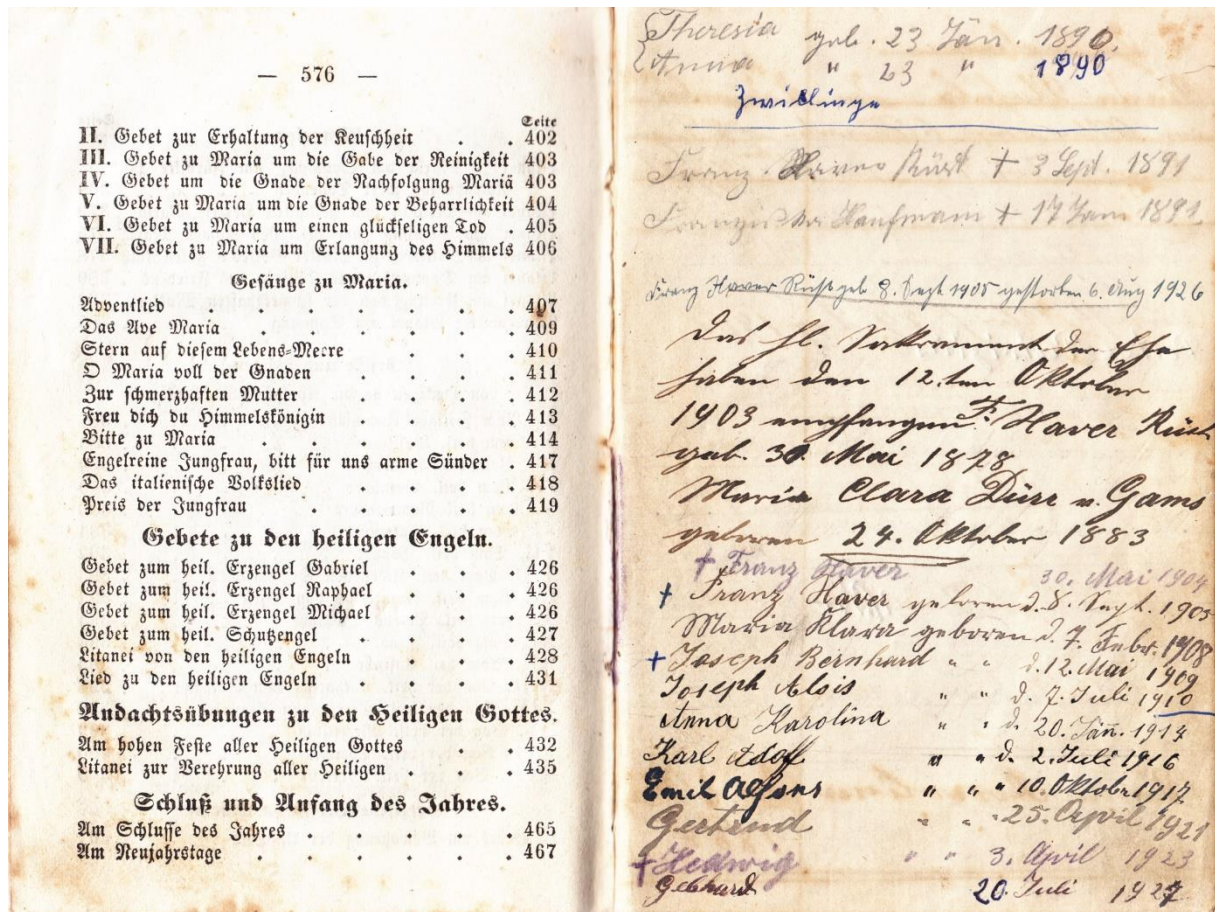 — 576 —
Seite
II. Gebet zur Erhaltung der Keuschheit . . 402
III. Gebet zu Maria um die Gabe der Reinigkeit 403
IV. Gebet um die Gnade der Nachfolgung Mariä 403
V. Gebet zu Maria um die Gnade der Beharrlichkeit 404
VI. Gebet zu Maria um einen glückseligen Tod . 405
VII. Gebet zu Maria um Erlangung des Himmels 406
Gesänge zu Maria.
Adventlied . . . . . . 407
Das Ave Maria . . . . . 409
Stern auf diesem Lebens-Meere . . . 410
O Maria voll der Gnaden . . . . 411
Zur schmerzhaften Mutter . . . . 412
Freu dich du Himmelskönigin . . . 413
Bitte zu Maria . . . . . 414
Engelreine Jungfrau, bitt für uns arme Sünder . 417
Das italienische Volkslied . . . . 418
Preis der Jungfrau . . . . 419
Gebete zu den heiligen Engeln.
Gebet zum heil. Erzengel Gabriel . . . 426
Gebet zum heil. Erzengel Raphael . . . 426
Gebet zum heil. Erzengel Michael . . . 426
Gebet zum heil. Schutzengel . . . . 427
Litanei von den heiligen Engeln . . . 428
Lied zu den heiligen Engeln . . . . 431
Andachtsübungen zu den Heiligen Gottes.
Am hohen Feste aller Heiligen Gottes . . 432
Litanei zur Verehrung aller Heiligen . . . 435
Schluß und Anfang des Jahres.
Am Schlusse des Jahres . . . . . 465
Am Neujahrstage . . . . . 467
Theresia geb. 23 Jän. 1890.
Anna " 23 " 1890
Zwillinge
Franz Xaver Rüst † 3 Sept. 1891
Franziska Kaufmann † 17 Jan 1891
Franz Xaver Rüst geb. 8. Sept 1905 gestorben 6. Aug 1926
Das hl. Sakrament der Ehe
haben den 12.ten Oktober
1903 empfangen F. Xaver Rüst
geb. 30. Mai 1878
Maria Clara Dürr v. Gams
geboren 24. Oktober 1883
† Franz Xaver 30. Mai 1904
† Franz Xaver geboren d. 8. Sept. 1905
Maria Klara geboren d. 7. Febr. 1908
† Joseph Bernhard " " d. 12. Mai 1909
Joseph Alois " " d. 7. Juli 1910
Anna Karolina " " d. 20. Jän. 1914
Karl Adolf " " d. 2. Juli 1916
Emil Alfons " " " 10. Oktober 1917
Gertrud " " " 25. April 1921
† Hedwig " " 3. April 1923
Gebhard 20. Juli 1927